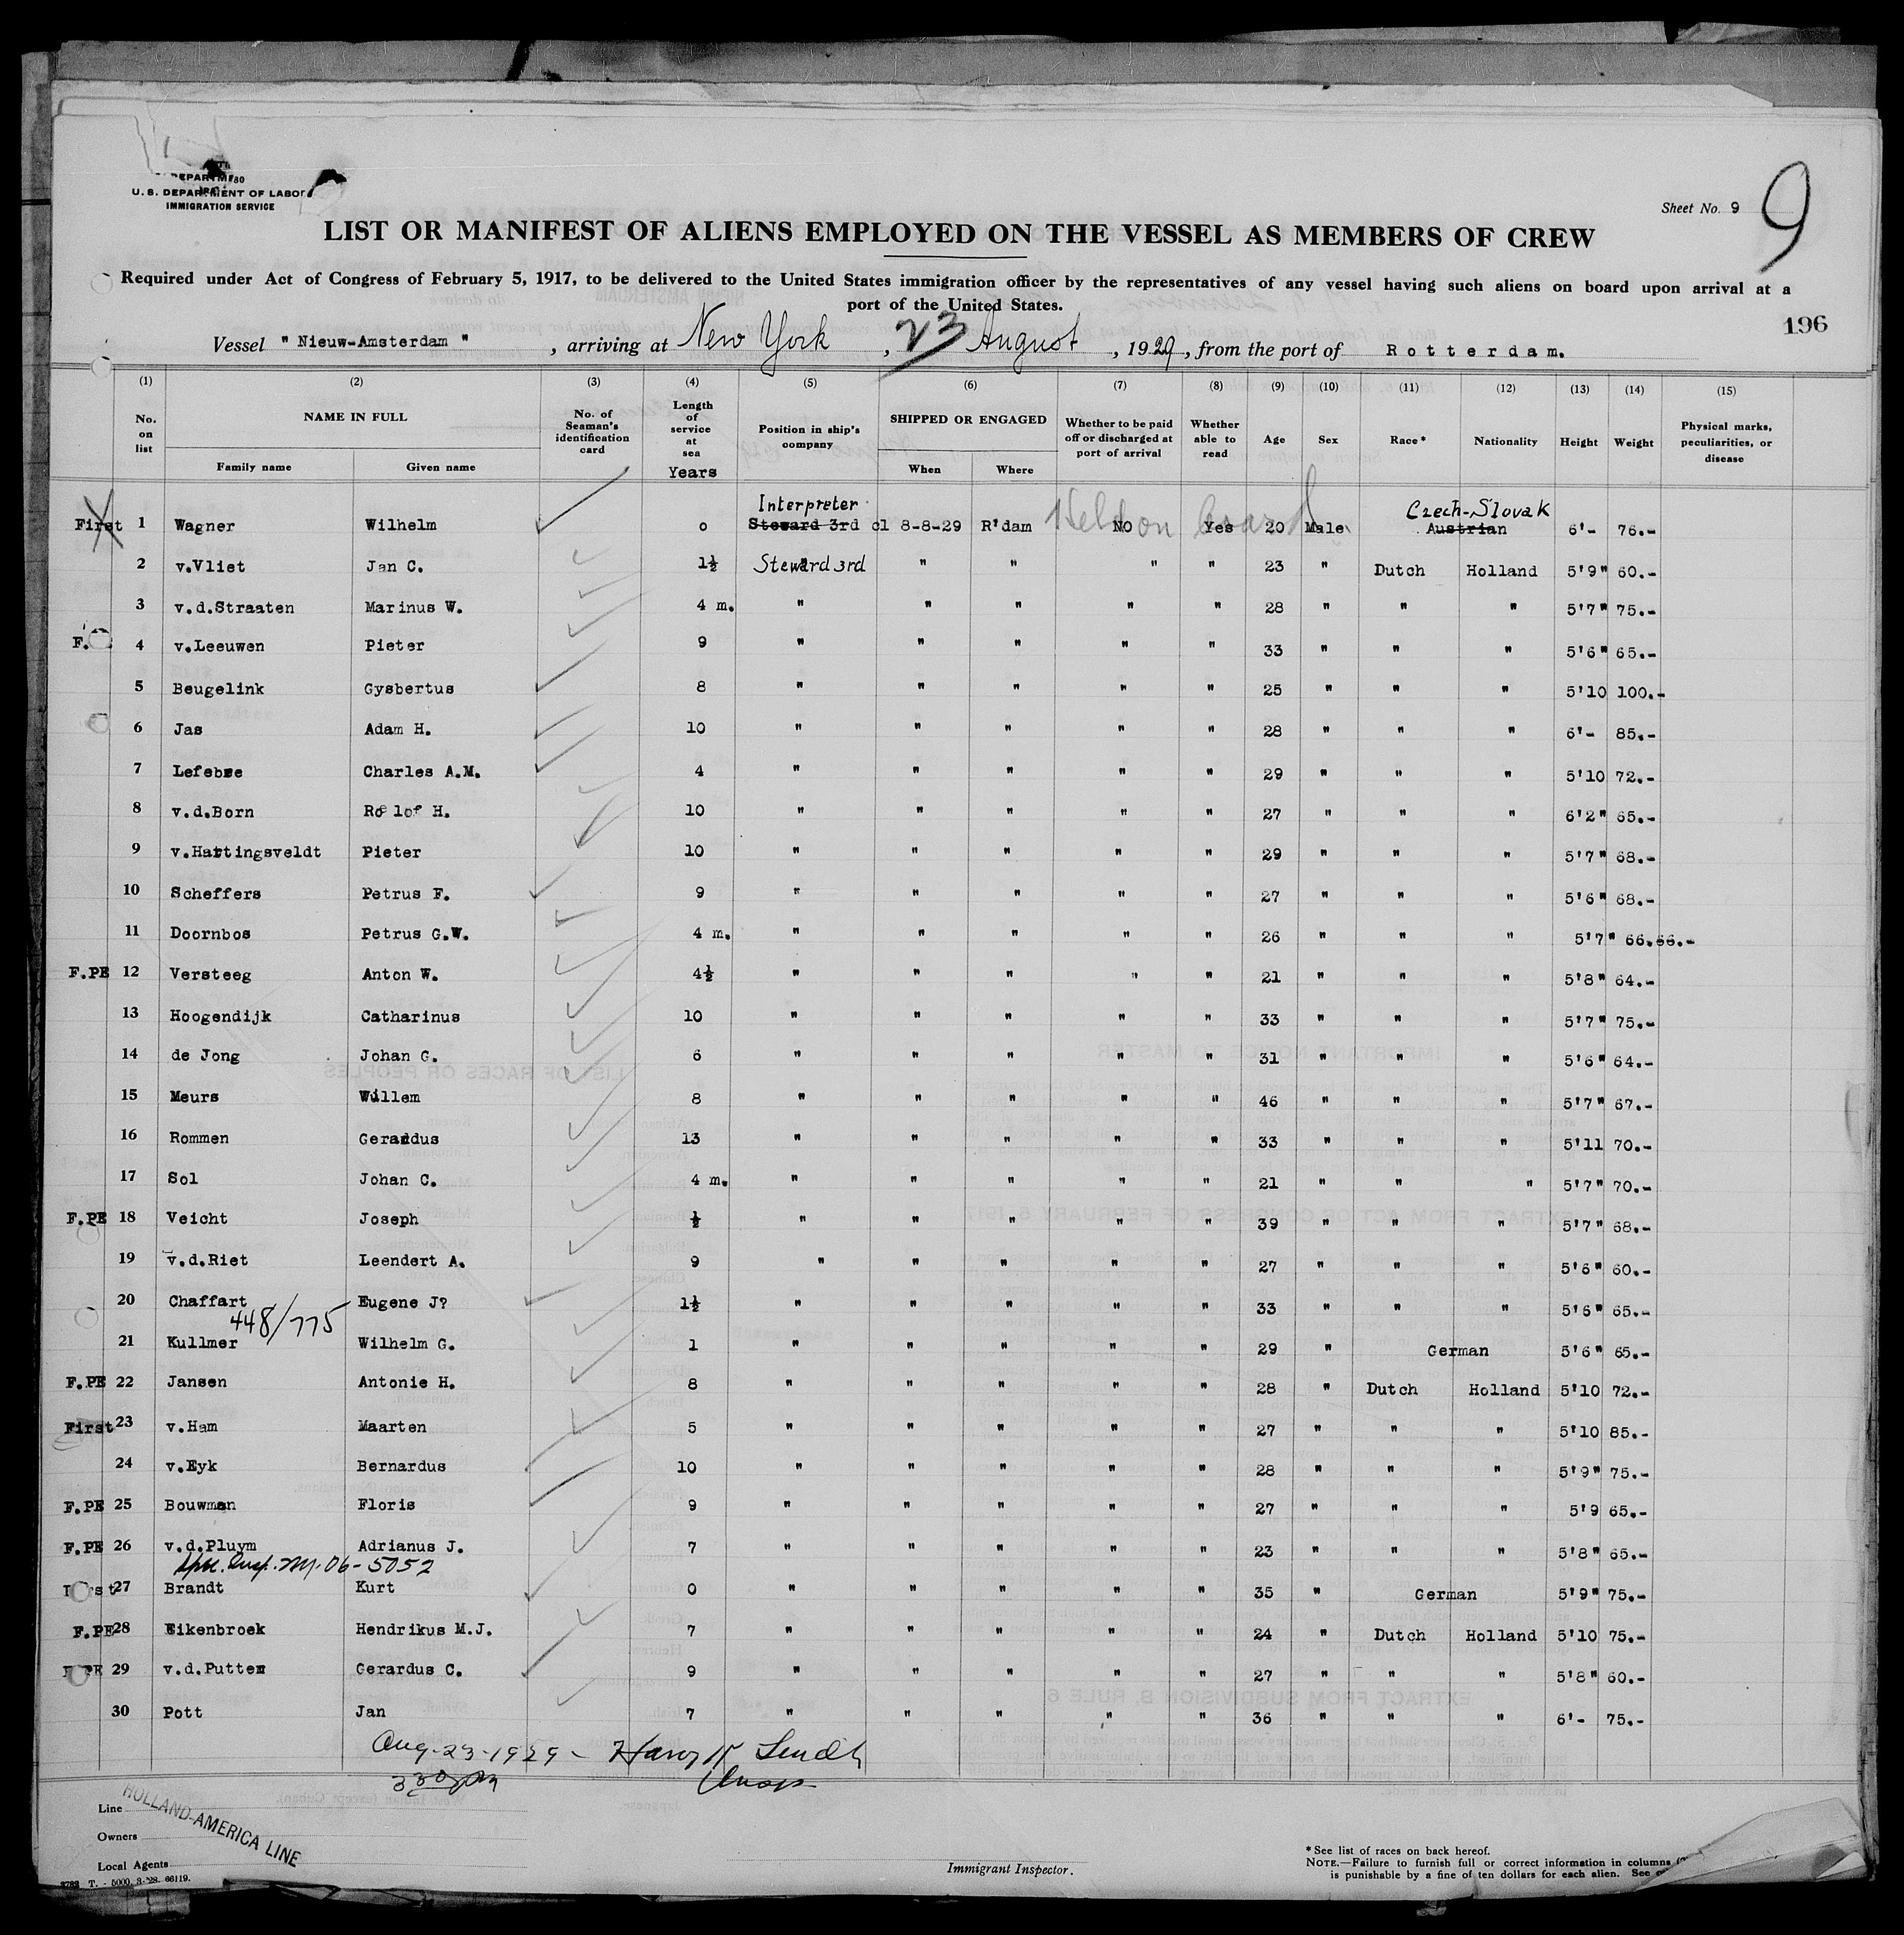 U. S. DEPARTMENT OF LABOR
IMMIGRATION SERVICE
Sheet No. 9
9
LIST OR MANIFEST OF ALIENS EMPLOYED ON THE VESSEL AS MEMBERS OF CREW
Required under Act of Congress of February 5, 1917, to be delivered to the United States immigration officer by the representatives of any vessel having such aliens on board upon arrival at a
port of the United States.
196
Vessel " Nieuw-Amsterdam " , arriving at New York , 23 August , 1929 , from the port of Rotterdam.
(1) (2) (3) (4) (5) (6) (7) (8) (9) (10) (11) (12) (13) (14) (15)
No. on list NAME IN FULL Family name Given name No. of Seaman's identification card Length of service at sea Years Position in ship's company SHIPPED OR ENGAGED When Where Whether to be paid off or discharged at port of arrival Whether able to read Age Sex Race* Nationality Height Weight Physical marks, peculiarities, or disease
Interpreter Czech-Slovak
First 1 Wagner Wilhelm 0 Steward 3rd cl 8-8-29 R'dam Held on board No Yes 20 Male Austrian 6'- 76.-
2 v.Vliet Jan C. 1½ Steward 3rd " " " " 23 " Dutch Holland 5'9" 60.-
3 v.d.Straaten Marinus W. 4 m. " " " " " 28 " " " 5'7" 75.-
F. 4 v.Leeuwen Pieter 9 " " " " " 33 " " " 5'6" 65.-
5 Beugelink Gysbertus 8 " " " " " 25 " " " 5'10 100.-
6 Jas Adam H. 10 " " " " " 28 " " " 6'- 85.-
7 Lefebre Charles A.M. 4 " " " " " 29 " " " 5'10 72.-
8 v.d.Born Roelof H. 10 " " " " " 27 " " " 6'2" 65.-
9 v.Hattingsveldt Pieter 10 " " " " " 29 " " " 5'7" 68.-
10 Scheffers Petrus F. 9 " " " " " 27 " " " 5'6" 68.-
11 Doornbos Petrus G.W. 4 m. " " " " " 26 " " " 5'7" 66.66.-
F.PE 12 Versteeg Anton W. 4½ " " " " " 21 " " " 5'8" 64.-
13 Hoogendijk Catharinus 10 " " " " " 33 " " " 5'7" 75.-
14 de Jong Johan G. 6 " " " " " 31 " " " 5'6" 64.-
15 Meurs Willem 8 " " " " " 46 " " " 5'7" 67.-
16 Rommen Gerardus 13 " " " " " 33 " " " 5'11 70.-
17 Sol Johan C. 4 m. " " " " " 21 " " " 5'7" 70.-
F.PE 18 Veicht Joseph ½ " " " " " 39 " " " 5'7" 68.-
19 v.d.Riet Leendert A. 9 " " " " " 27 " " " 5'6" 60.-
20 Chaffart Eugene J? 1½ " " " " " 33 " " " 5'6" 65.-
448/775
21 Kullmer Wilhelm G. 1 " " " " " 29 " German 5'6" 65.-
F.PE 22 Jansen Antonie H. 8 " " " " " 28 " Dutch Holland 5'10 72.-
First 23 v.Ham Maarten 5 " " " " " 27 " " " 5'10 85.-
24 v.Eyk Bernardus 10 " " " " " 28 " " " 5'9" 75.-
F.PE 25 Bouwman Floris 9 " " " " " 27 " " " 5'9 65.-
F.PE 26 v.d.Pluym Adrianus J. 7 " " " " " 23 " " " 5'8" 65.-
06-5052
27 Brandt Kurt 0 " " " " " 35 " German 5'9" 75.-
F.PE 28 Eikenbroek Hendrikus M.J. 7 " " " " " 24 " Dutch Holland 5'10 75.-
F.PE 29 v.d.Putten Gerardus C. 9 " " " " " 27 " " " 5'8" 60.-
30 Pott Jan 7 " " " " " 36 " " " 6'- 75.-
Aug-23-1929 -
330 pm
Line
HOLLAND-AMERICA LINE
Owners
Local Agents
T. - 5000. 3-'28. 66119.
Immigrant Inspector.
* See list of races on back hereof.
NOTE.—Failure to furnish full or correct information in columns
is punishable by a fine of ten dollars for each alien. See